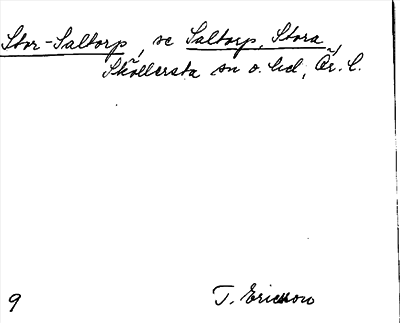 Stor-Saltorp, se Saltorp, Stora,
Sköllersta sn o. hd, Ör. l.
9
T. Ericsson